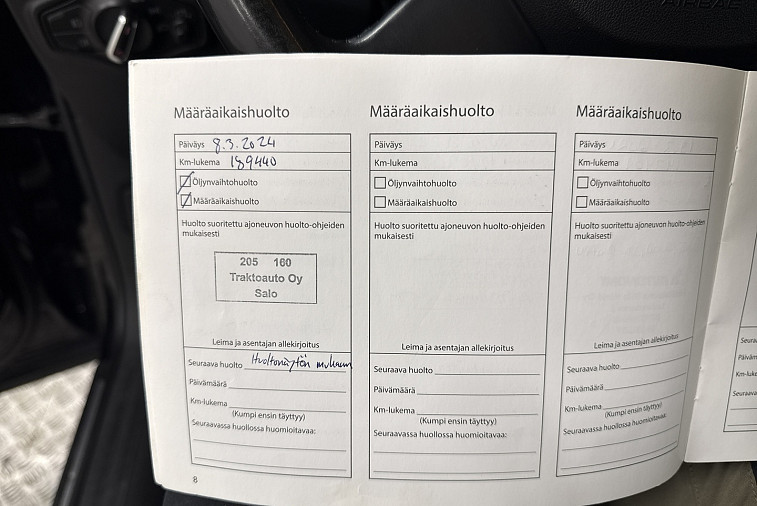 AIRBAG
Määräaikaishuolto
Päiväys 8.3.2024
Km-lukema 189440
Öljynvaihtohuolto
Määräaikaishuolto
Huolto suoritettu ajoneuvon huolto-ohjeiden
mukaisesti
205 160
Traktoauto Oy
Salo
Leima ja asentajan allekirjoitus
Seuraava huolto Huoltonäytön mukaan
Päivämäärä
Km-lukema
(Kumpi ensin täyttyy)
Seuraavassa huollossa huomioitavaa:
8
Määräaikaishuolto
Päiväys
Km-lukema
Öljynvaihtohuolto
Määräaikaishuolto
Huolto suoritettu ajoneuvon huolto-ohjeiden
mukaisesti
Leima ja asentajan allekirjoitus
Seuraava huolto
Päivämäärä
Km-lukema
(Kumpi ensin täyttyy)
Seuraavassa huollossa huomioitavaa:
Määräaikaishuolto
Päiväys
Km-lukema
Öljynvaihtohuolto
Määräaikaishuolto
Huolto suoritettu ajoneuvon huolto-ohjeiden
mukaisesti
Leima ja asentajan allekirjoitus
Seuraava huolto
Päivämäärä
Km-lukema
(Kumpi ensin täyttyy)
Seuraavassa huollossa huomioitavaa: